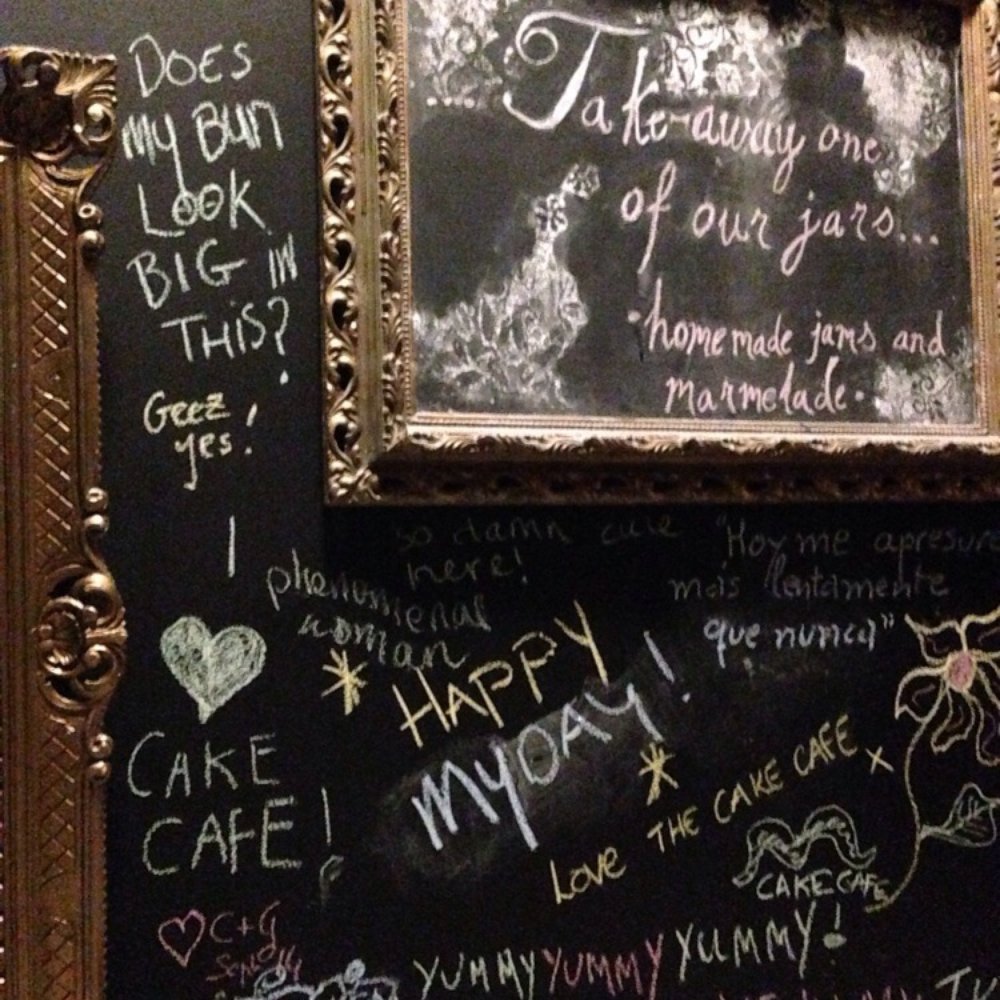 DOES
MY BUN
LOOK
BIG IN
THIS?
Geez
yes!
Take-away one
of our jars...
·homemade jams and
marmelade·
so damn cute
here!
"Hoy me apresure
mais lentamente
que nunca"
I
phenomenal
woman
CAKE
CAFE!
HAPPY
MYDAY!
Love THE CAKE CAFE x
CAKE CAFE
C+G
YUMMY YUMMY YUMMY!